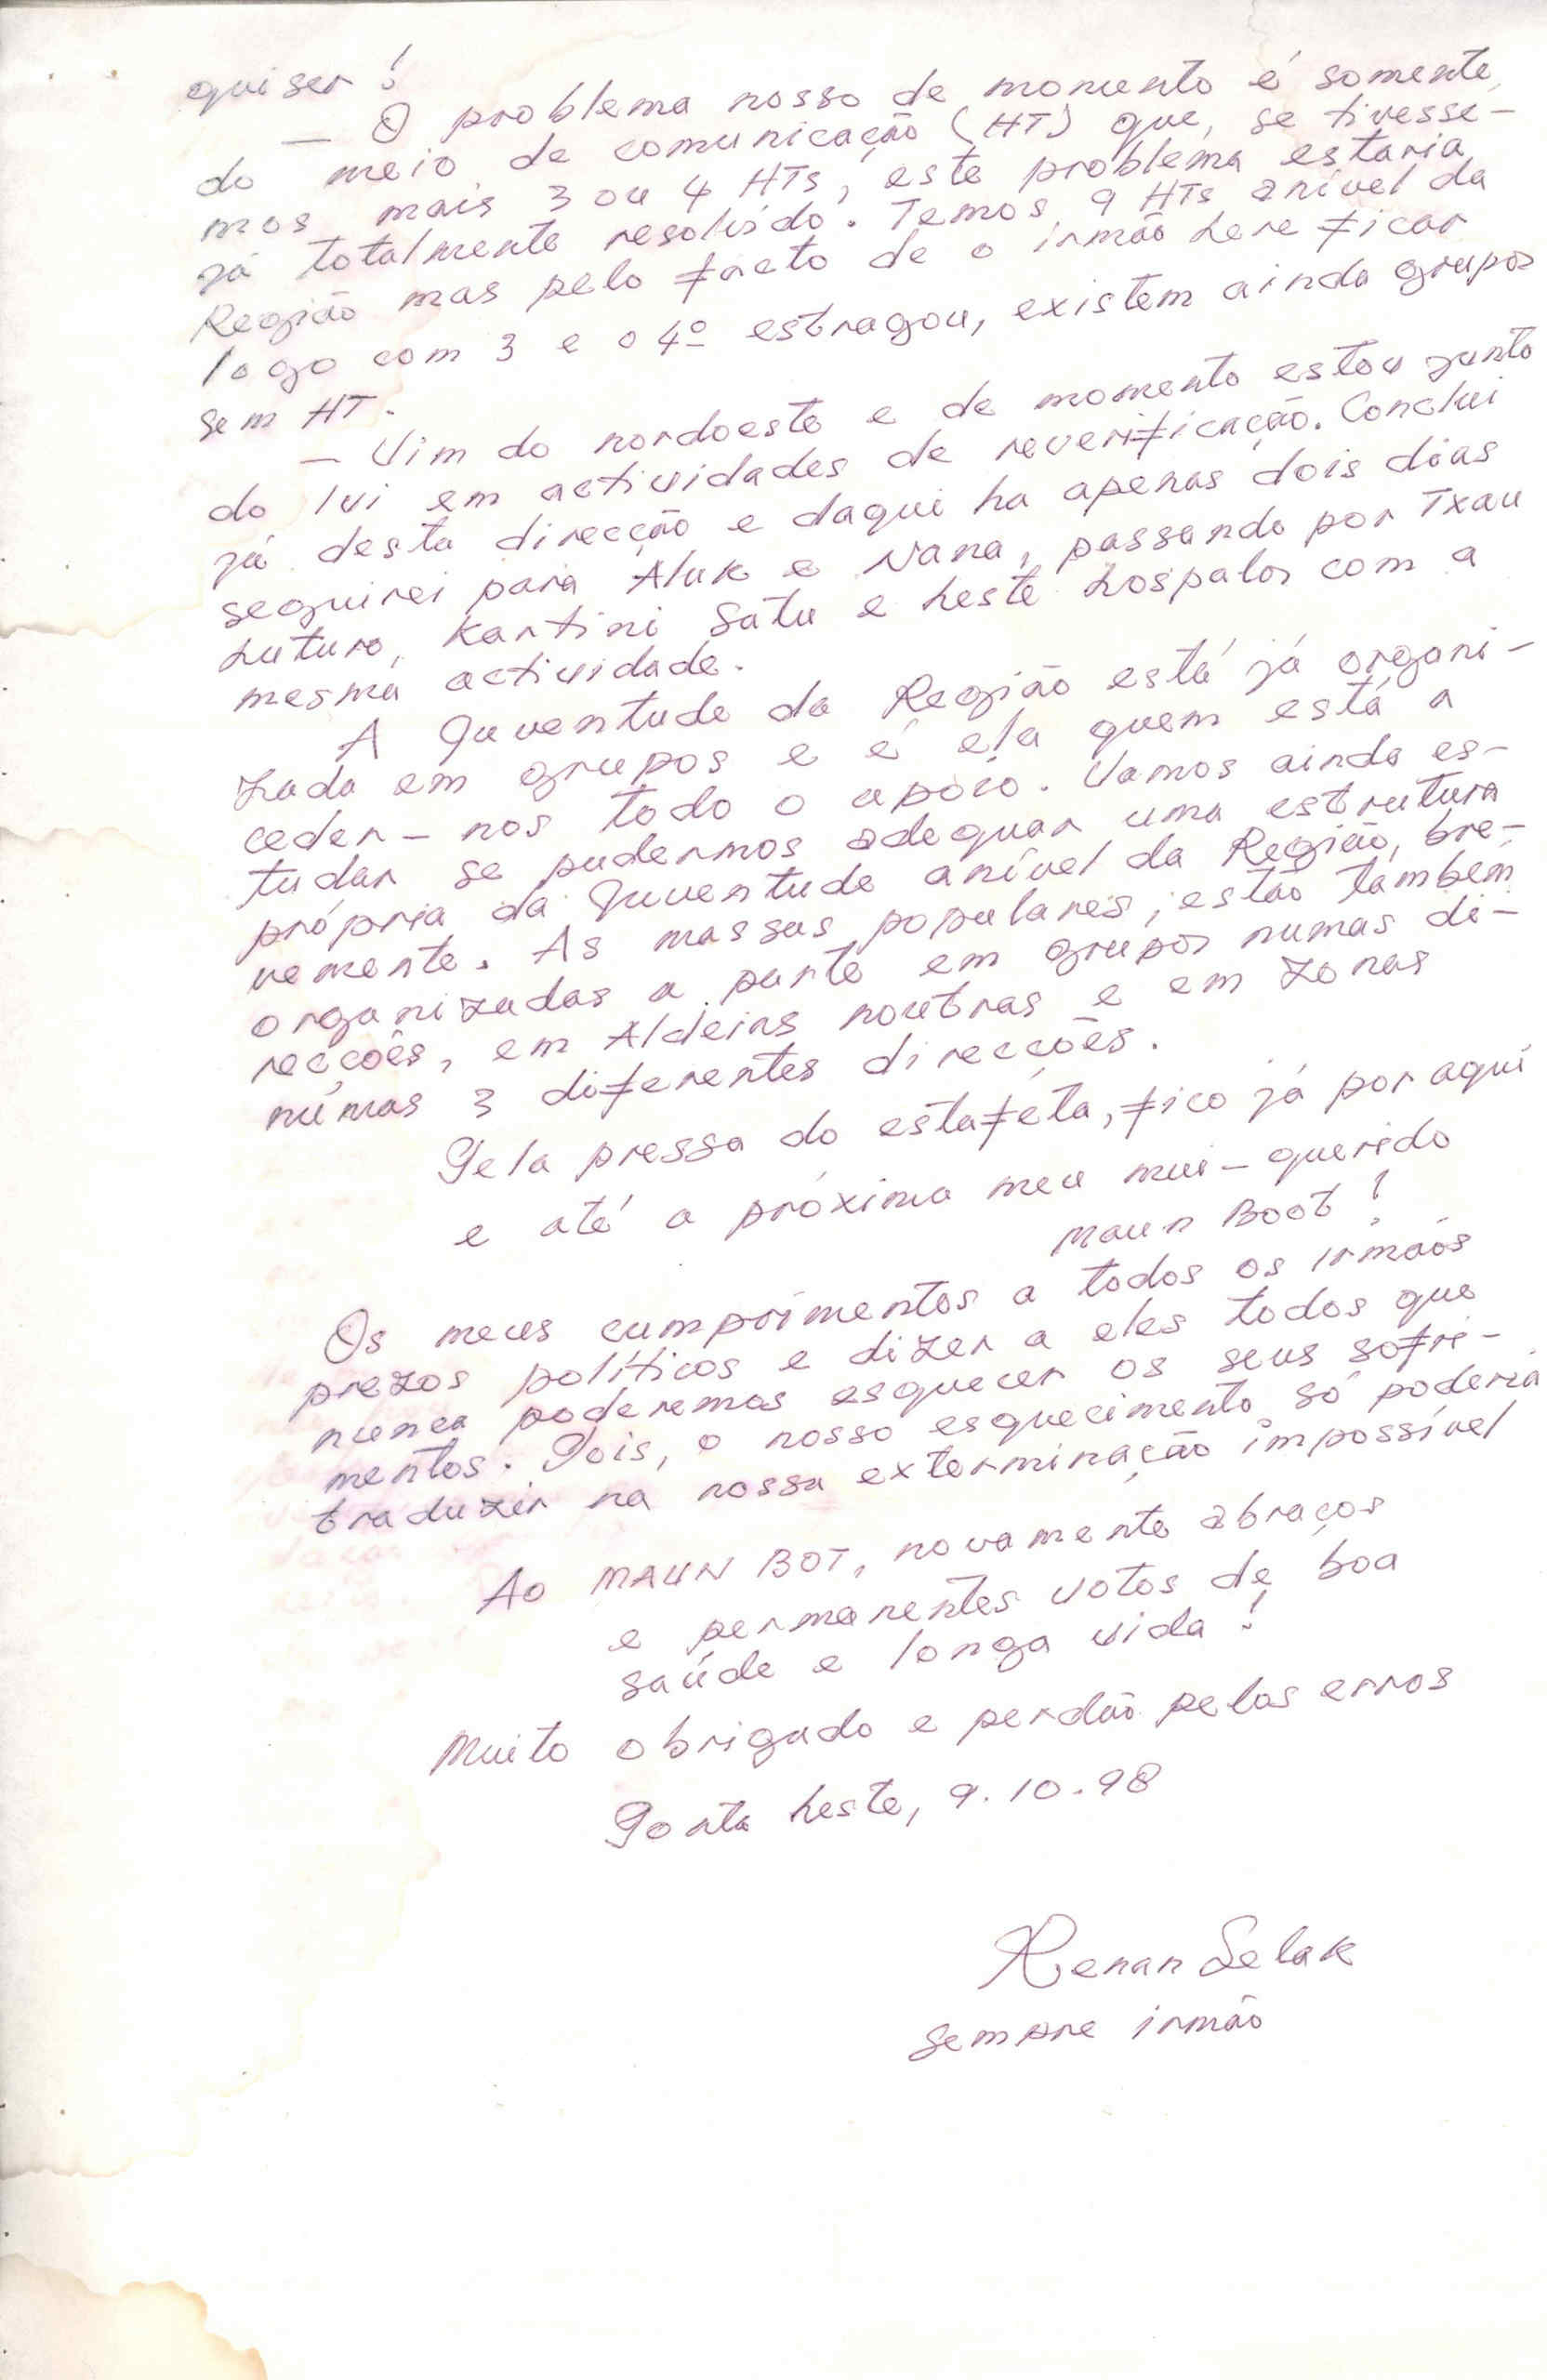 quiser!
— O problema nosso de momento é somente
do meio de comunicação (HT) que, se tivesse-
mos mais 3 ou 4 HTs, este problema estaria
já totalmente resolvido. Temos 9 HTs anível da
Região mas pelo facto de o irmão Lere ficar
logo com 3 e o 4º estragou, existem ainda grupos
sem HT.
— Vim do nordoeste e de momento estou junto
do lvi em actividades de reverificação. Conclui
já desta direcção e daqui ha apenas dois dias
seguirei para Aluk e Nana, passando por Txau
Luturo, Kartini Satu e Leste Lospalos com a
mesma actividade.
A Juventude da Região está já organi-
zada em grupos e é ela quem está a
ceder-nos todo o apoio. Vamos ainda es-
tudar se pudermos adequar uma estrutura
própria da Juventude anível da Região, bre-
vemente. As massas populares, estão também
organizadas a parte em grupos numas di-
recções, em Aldeias noutras e em zonas
númas 3 diferentes direcções.
Pela pressa do estaféta, fico já por aqui
e até a próxima meu mui-querido
Maun Boot!
Os meus cumprimentos a todos os irmãos
prezos políticos e dizer a eles todos que
nunca poderemos esquecer os seus sofri-
mentos. Pois, o nosso esquecimento só poderia
traduzir na nossa exterminação impossível
Ao MAUN BOT, novamente abraços
e permanentes votos de boa
saúde e longa vida!
Muito obrigado e perdão pelos erros
Ponta Leste, 9.10.98
Renan Selak
sempre irmão